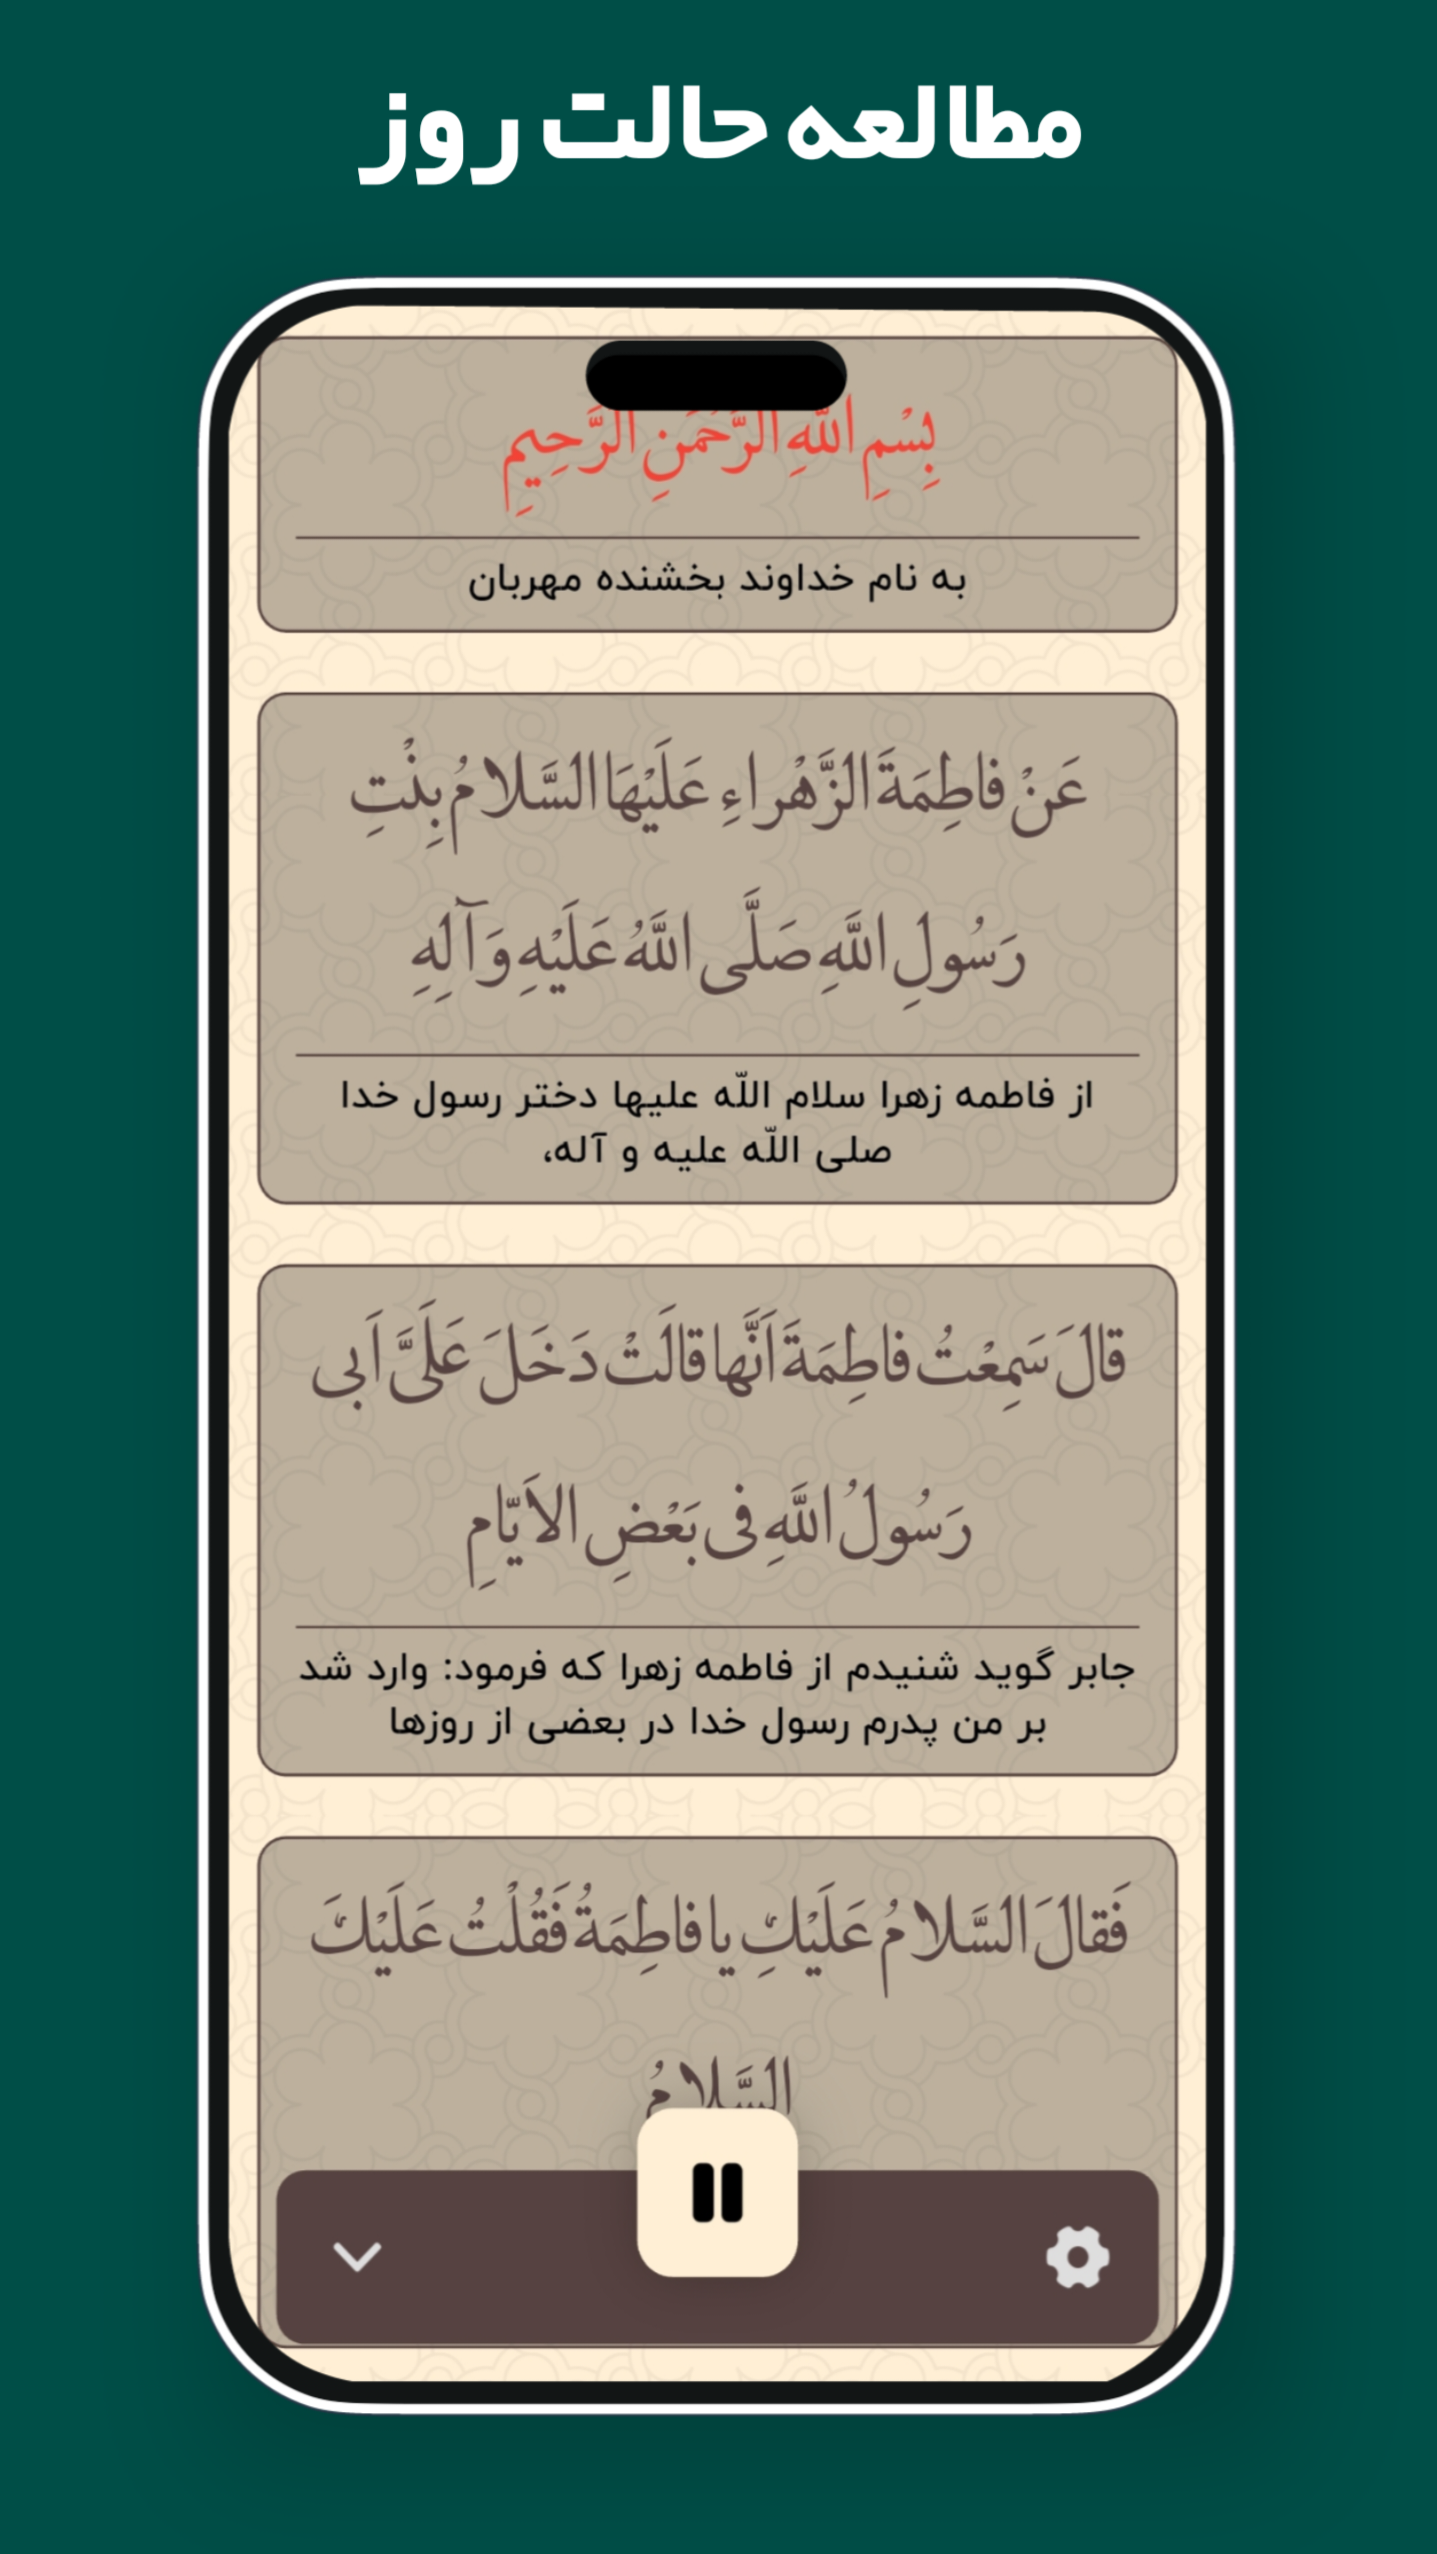 مطالعه حالت روز
بِسْمِ اللَّهِ الرَّحْمَنِ الرَّحِيمِ
به نام خداوند بخشنده مهربان
عَنْ فاطِمَةَ الزَّهْراءِ عَلَيْهَا السَّلامُ بِنْتِ
رَسُولِ اللَّهِ صَلَّى اللَّهُ عَلَيْهِ وَ آلِهِ
از فاطمه زهرا سلام اللّه علیها دختر رسول خدا
صلی اللّه علیه و آله،
قالَ سَمِعْتُ فاطِمَةَ اَنَّها قالَتْ دَخَلَ عَلَىَّ اَبى
رَسُولُ اللَّهِ فى بَعْضِ الاَيّامِ
جابر گوید شنیدم از فاطمه زهرا که فرمود: وارد شد
بر من پدرم رسول خدا در بعضی از روزها
فَقالَ السَّلامُ عَلَيْكِ يا فاطِمَةُ فَقُلْتُ عَلَيْكَ
السَّلامُ